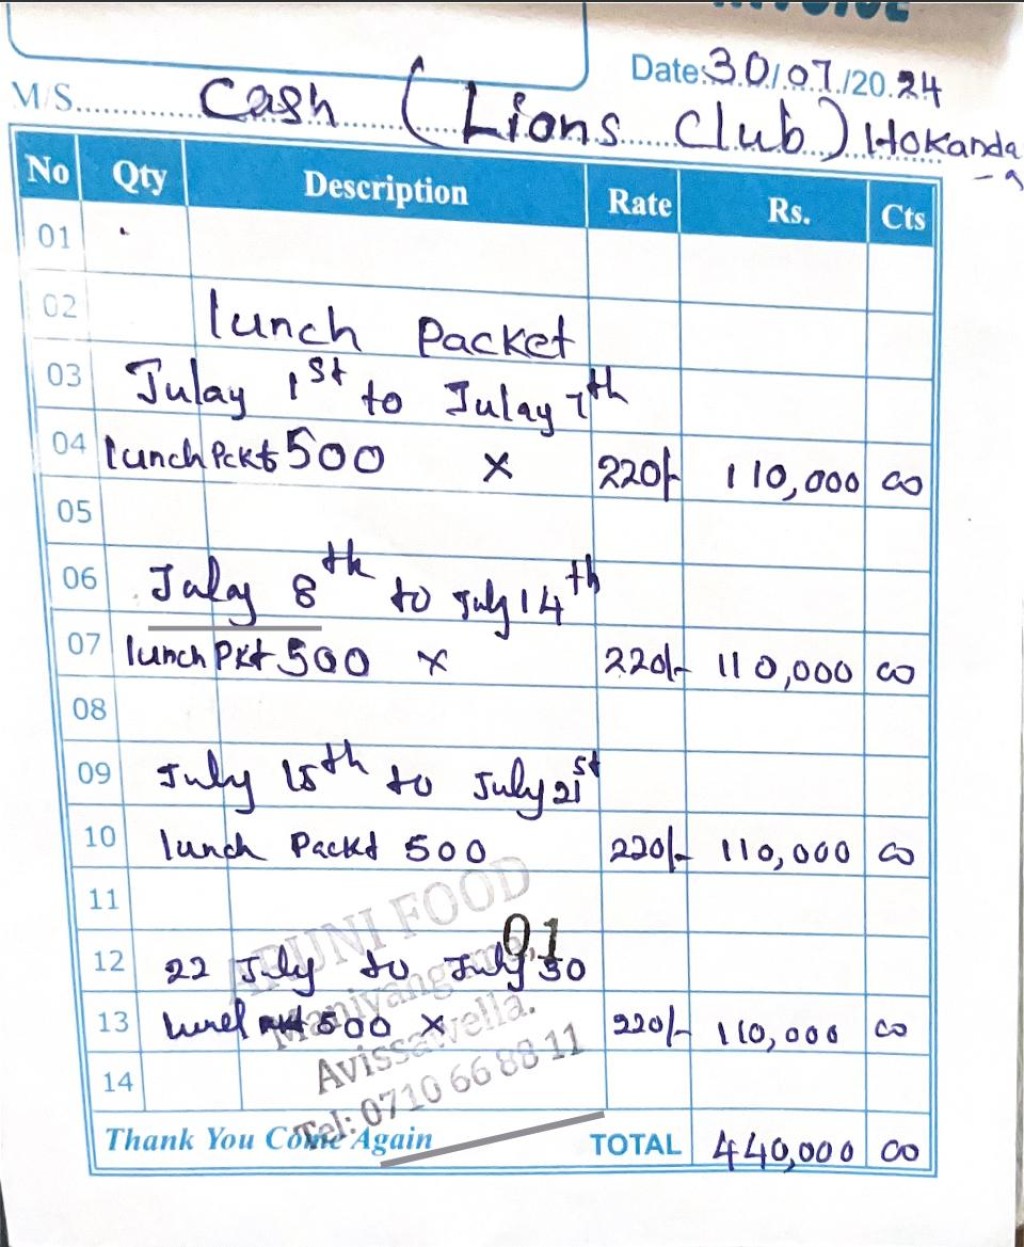 INVOICE
Date: 30/07/2024
M/S. Cash (Lions Club) Hokanda
No Qty Description Rate Rs. Cts
01
02 lunch Packet
03 Julay 1st to Julay 7th
04 lunch Pckt 500 x 220/- 110,000 00
05
06 Julay 8th to July 14th
07 lunch Pkt 500 x 220/- 110,000 00
08
09 July 15th to July 21st
10 lunch Packt 500 220/- 110,000 00
11
ARUNI FOOD
01
12 22 July to July 30
Maniyangama,
13 500 x 220/- 110,000 00
Avissawella.
14
Tel: 0710 66 88 11
Thank You Come Again TOTAL 440,000 00